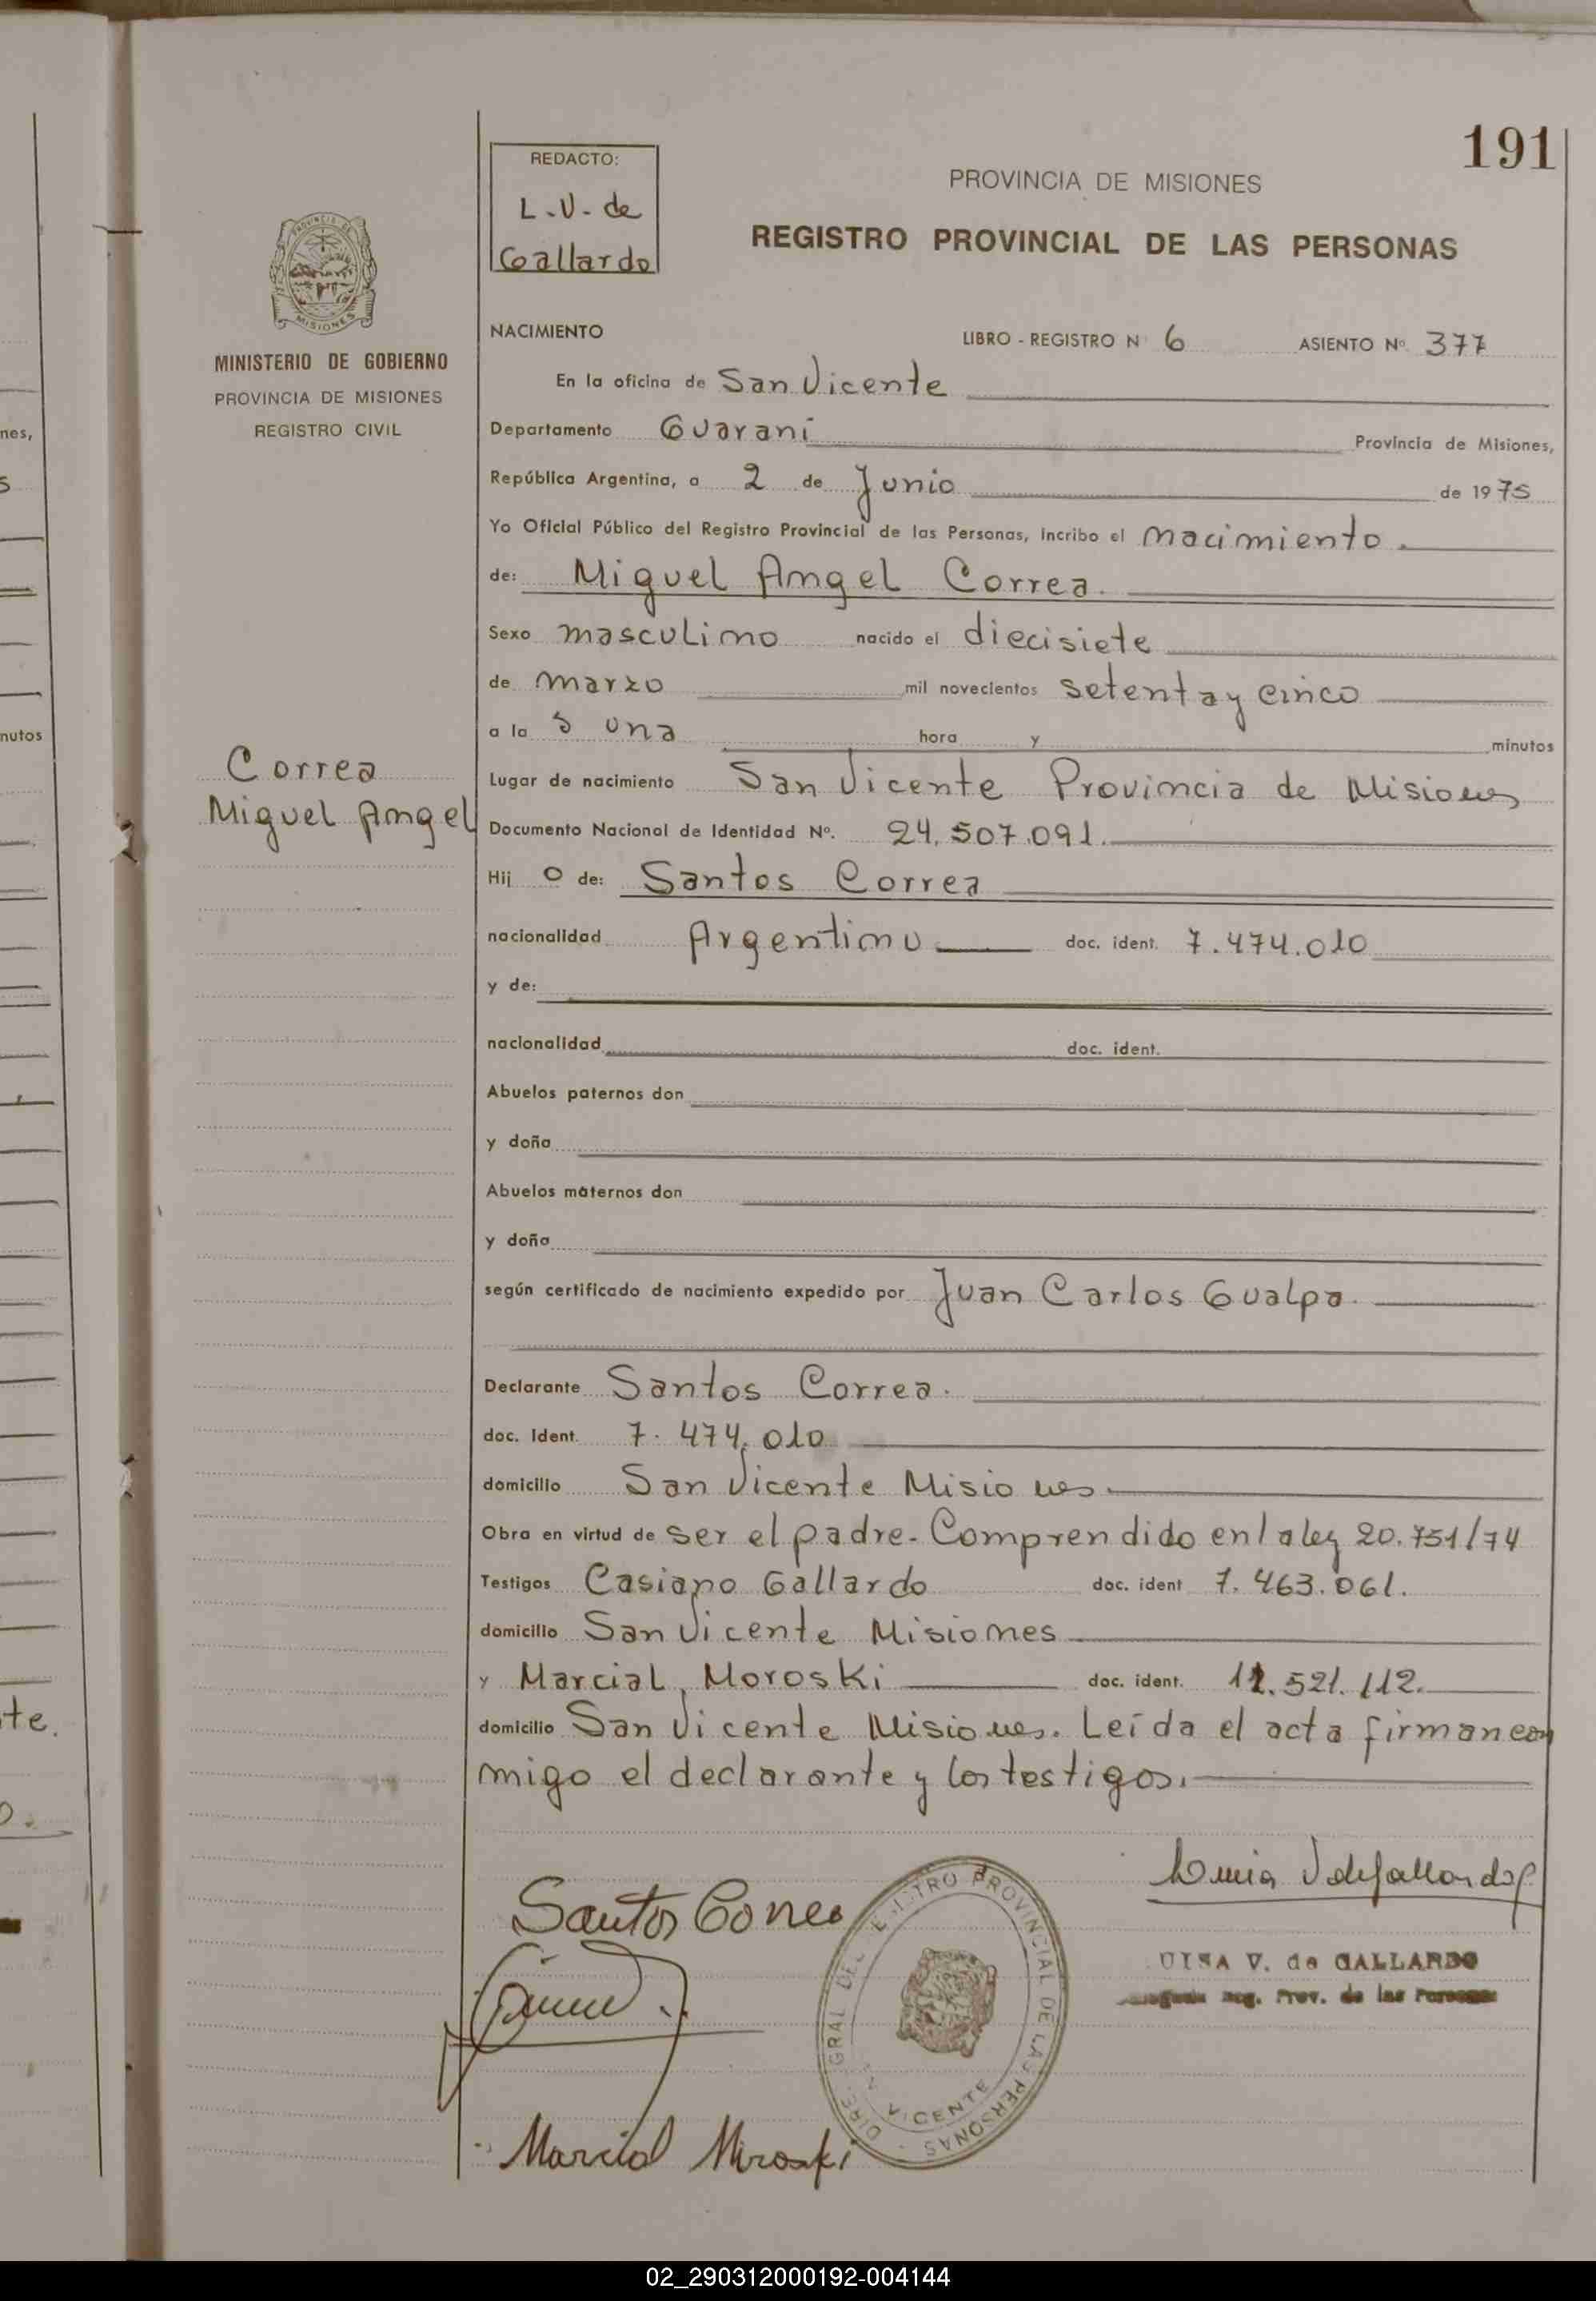 191
REDACTO:
L.V. de
Gallardo
PROVINCIA DE MISIONES
REGISTRO PROVINCIAL DE LAS PERSONAS
PROVINCIA DE
MISIONES
MINISTERIO DE GOBIERNO
PROVINCIA DE MISIONES
REGISTRO CIVIL
NACIMIENTO LIBRO - REGISTRO N 6 ASIENTO Nº 377
En la oficina de San Vicente
Departamento Guaraní Provincia de Misiones,
República Argentina, a 2 de Junio de 1975
Yo Oficial Público del Registro Provincial de las Personas, incribo el nacimiento.
de: Miguel Angel Correa.
Sexo masculino nacido el diecisiete
de marzo mil novecientos setenta y cinco
a la s una hora y minutos
Correa
Miguel Angel
Lugar de nacimiento San Vicente Provincia de Misiones
Documento Nacional de Identidad Nº. 24.507.091.
Hij o de: Santos Correa
nacionalidad Argentino doc. ident. 7.474.010
y de:
nacionalidad doc. ident.
Abuelos paternos don
y doña
Abuelos maternos don
y doña
según certificado de nacimiento expedido por Juan Carlos Gualpa.
Declarante Santos Correa.
doc. Ident. 7.474.010
domicilio San Vicente Misiones.
Obra en virtud de ser el padre. Comprendido en la ley 20.751/74
Testigos Casiano Gallardo doc. ident 7.463.061.
domicilio San Vicente Misiones
y Marcial Moroski doc. ident. 11.521.112.
domicilio San Vicente Misiones. Leída el acta firman con
migo el declarante y los testigos.
Santos Correa
UISA V. de GALLARDO
Reg. Prov. de las Personas
GRAL DEL REGISTRO PROVINCIAL DE LAS PERSONAS
VICENTE
Marcial Moroski
nes,
s
nutos
te.
o.
02_290312000192-004144